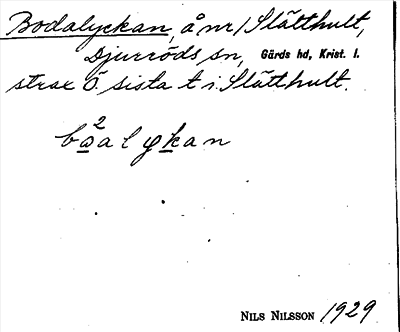 Bodalyckan, å nr 1 Slätthult,
Djurröds sn, Gärds hd, Krist. l.
strax Ö. sista t i Slätthult.
2
bωalykan
NILS NILSSON 1929